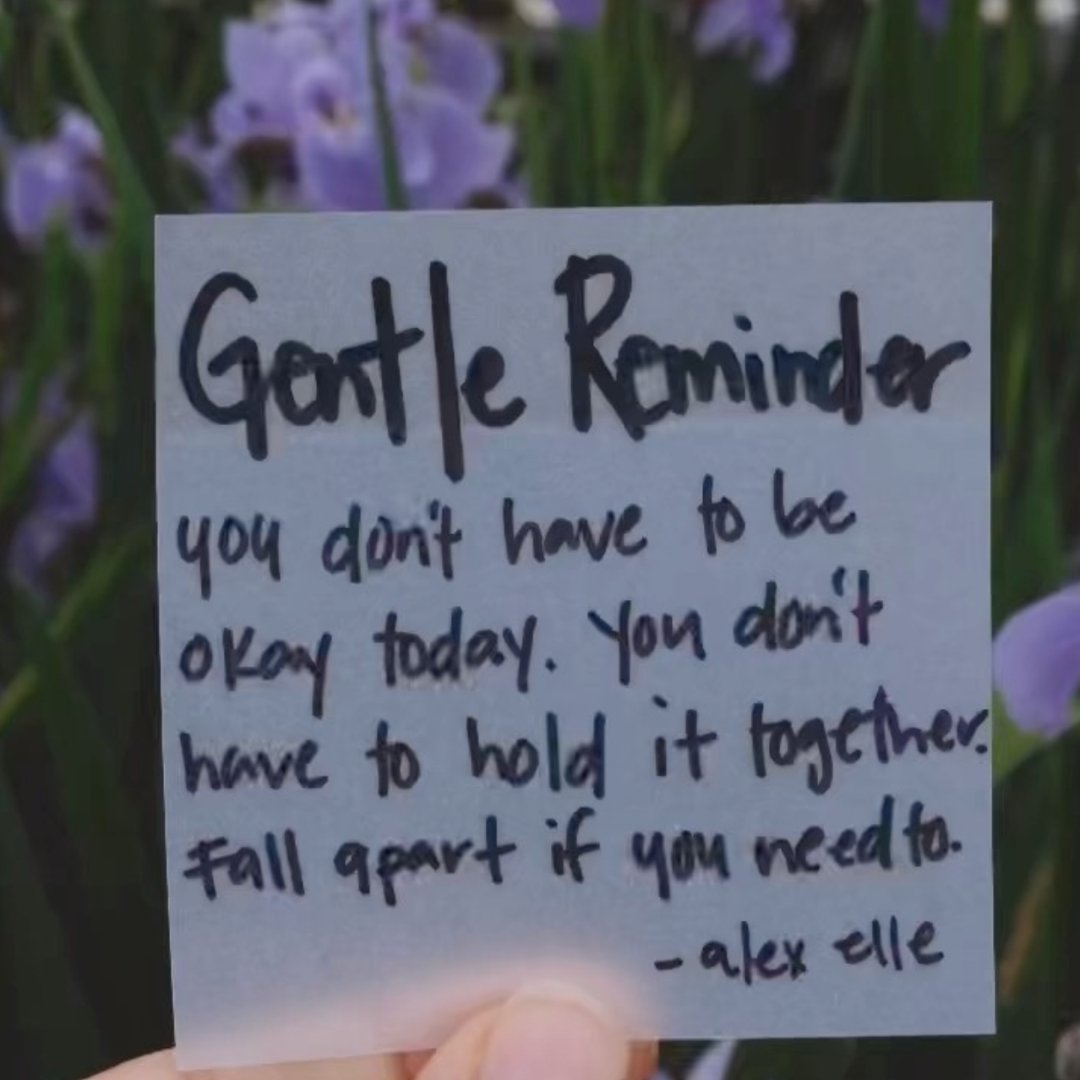 Gentle Reminder
you don't have to be
okay today. You don't
have to hold it together.
Fall apart if you need to.
- alex elle